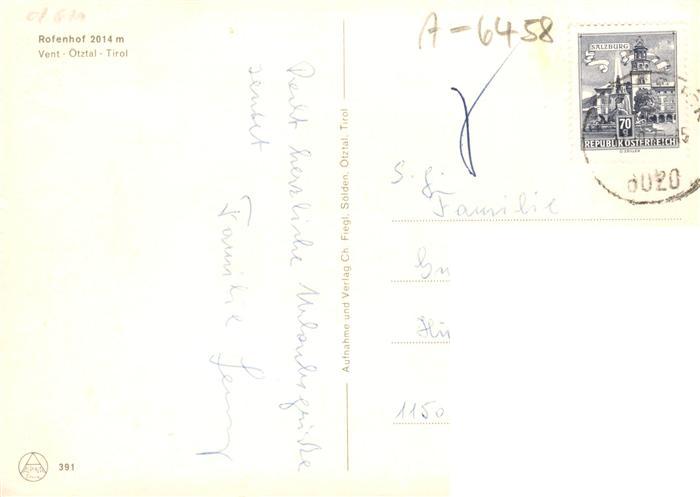 Rofenhof 2014 m
Vent - Ötztal - Tirol
A-6458
SALZBURG
70 g
REPUBLIK ÖSTERREICH
6020
Recht herzliche Urlaubsgrüße
sendet
Familie
Aufnahme und Verlag Ch. Fiegl, Sölden, Ötztal, Tirol
Familie
1150
391